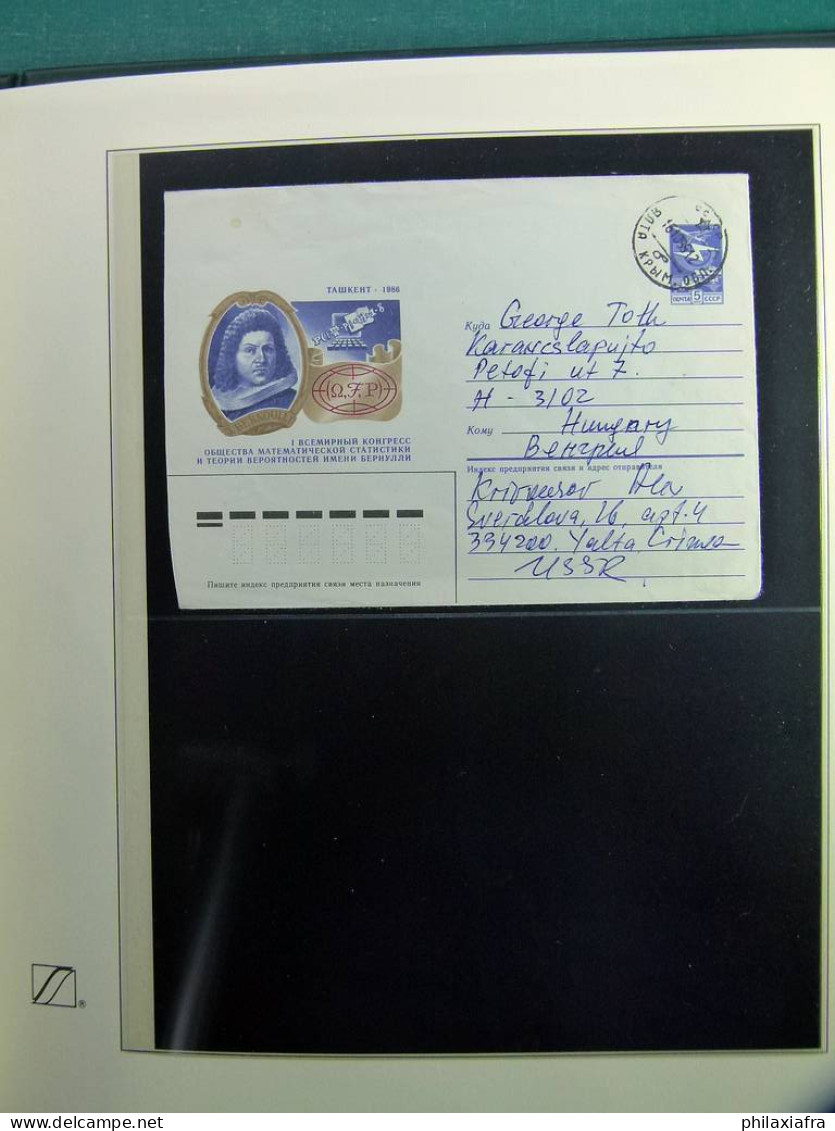 ТАШКЕНТ · 1986
(Ω, F, P)
I ВСЕМИРНЫЙ КОНГРЕСС
ОБЩЕСТВА МАТЕМАТИЧЕСКОЙ СТАТИСТИКИ
И ТЕОРИИ ВЕРОЯТНОСТЕЙ ИМЕНИ БЕРНУЛЛИ
Пишите индекс предприятия связи места назначения
ЯЛТА
КРЫМ. ОБЛ.
ПОЧТА 5 СССР
Куда George Toth
Karancslapujto
Petofi ut 7.
H - 3102
Кому Hungary
Венгрия
Индекс предприятия связи и адрес отправителя
Alex
Sverdlova, 26, apt. 4
334200 Yalta Crimea
USSR
®
philaxiafra